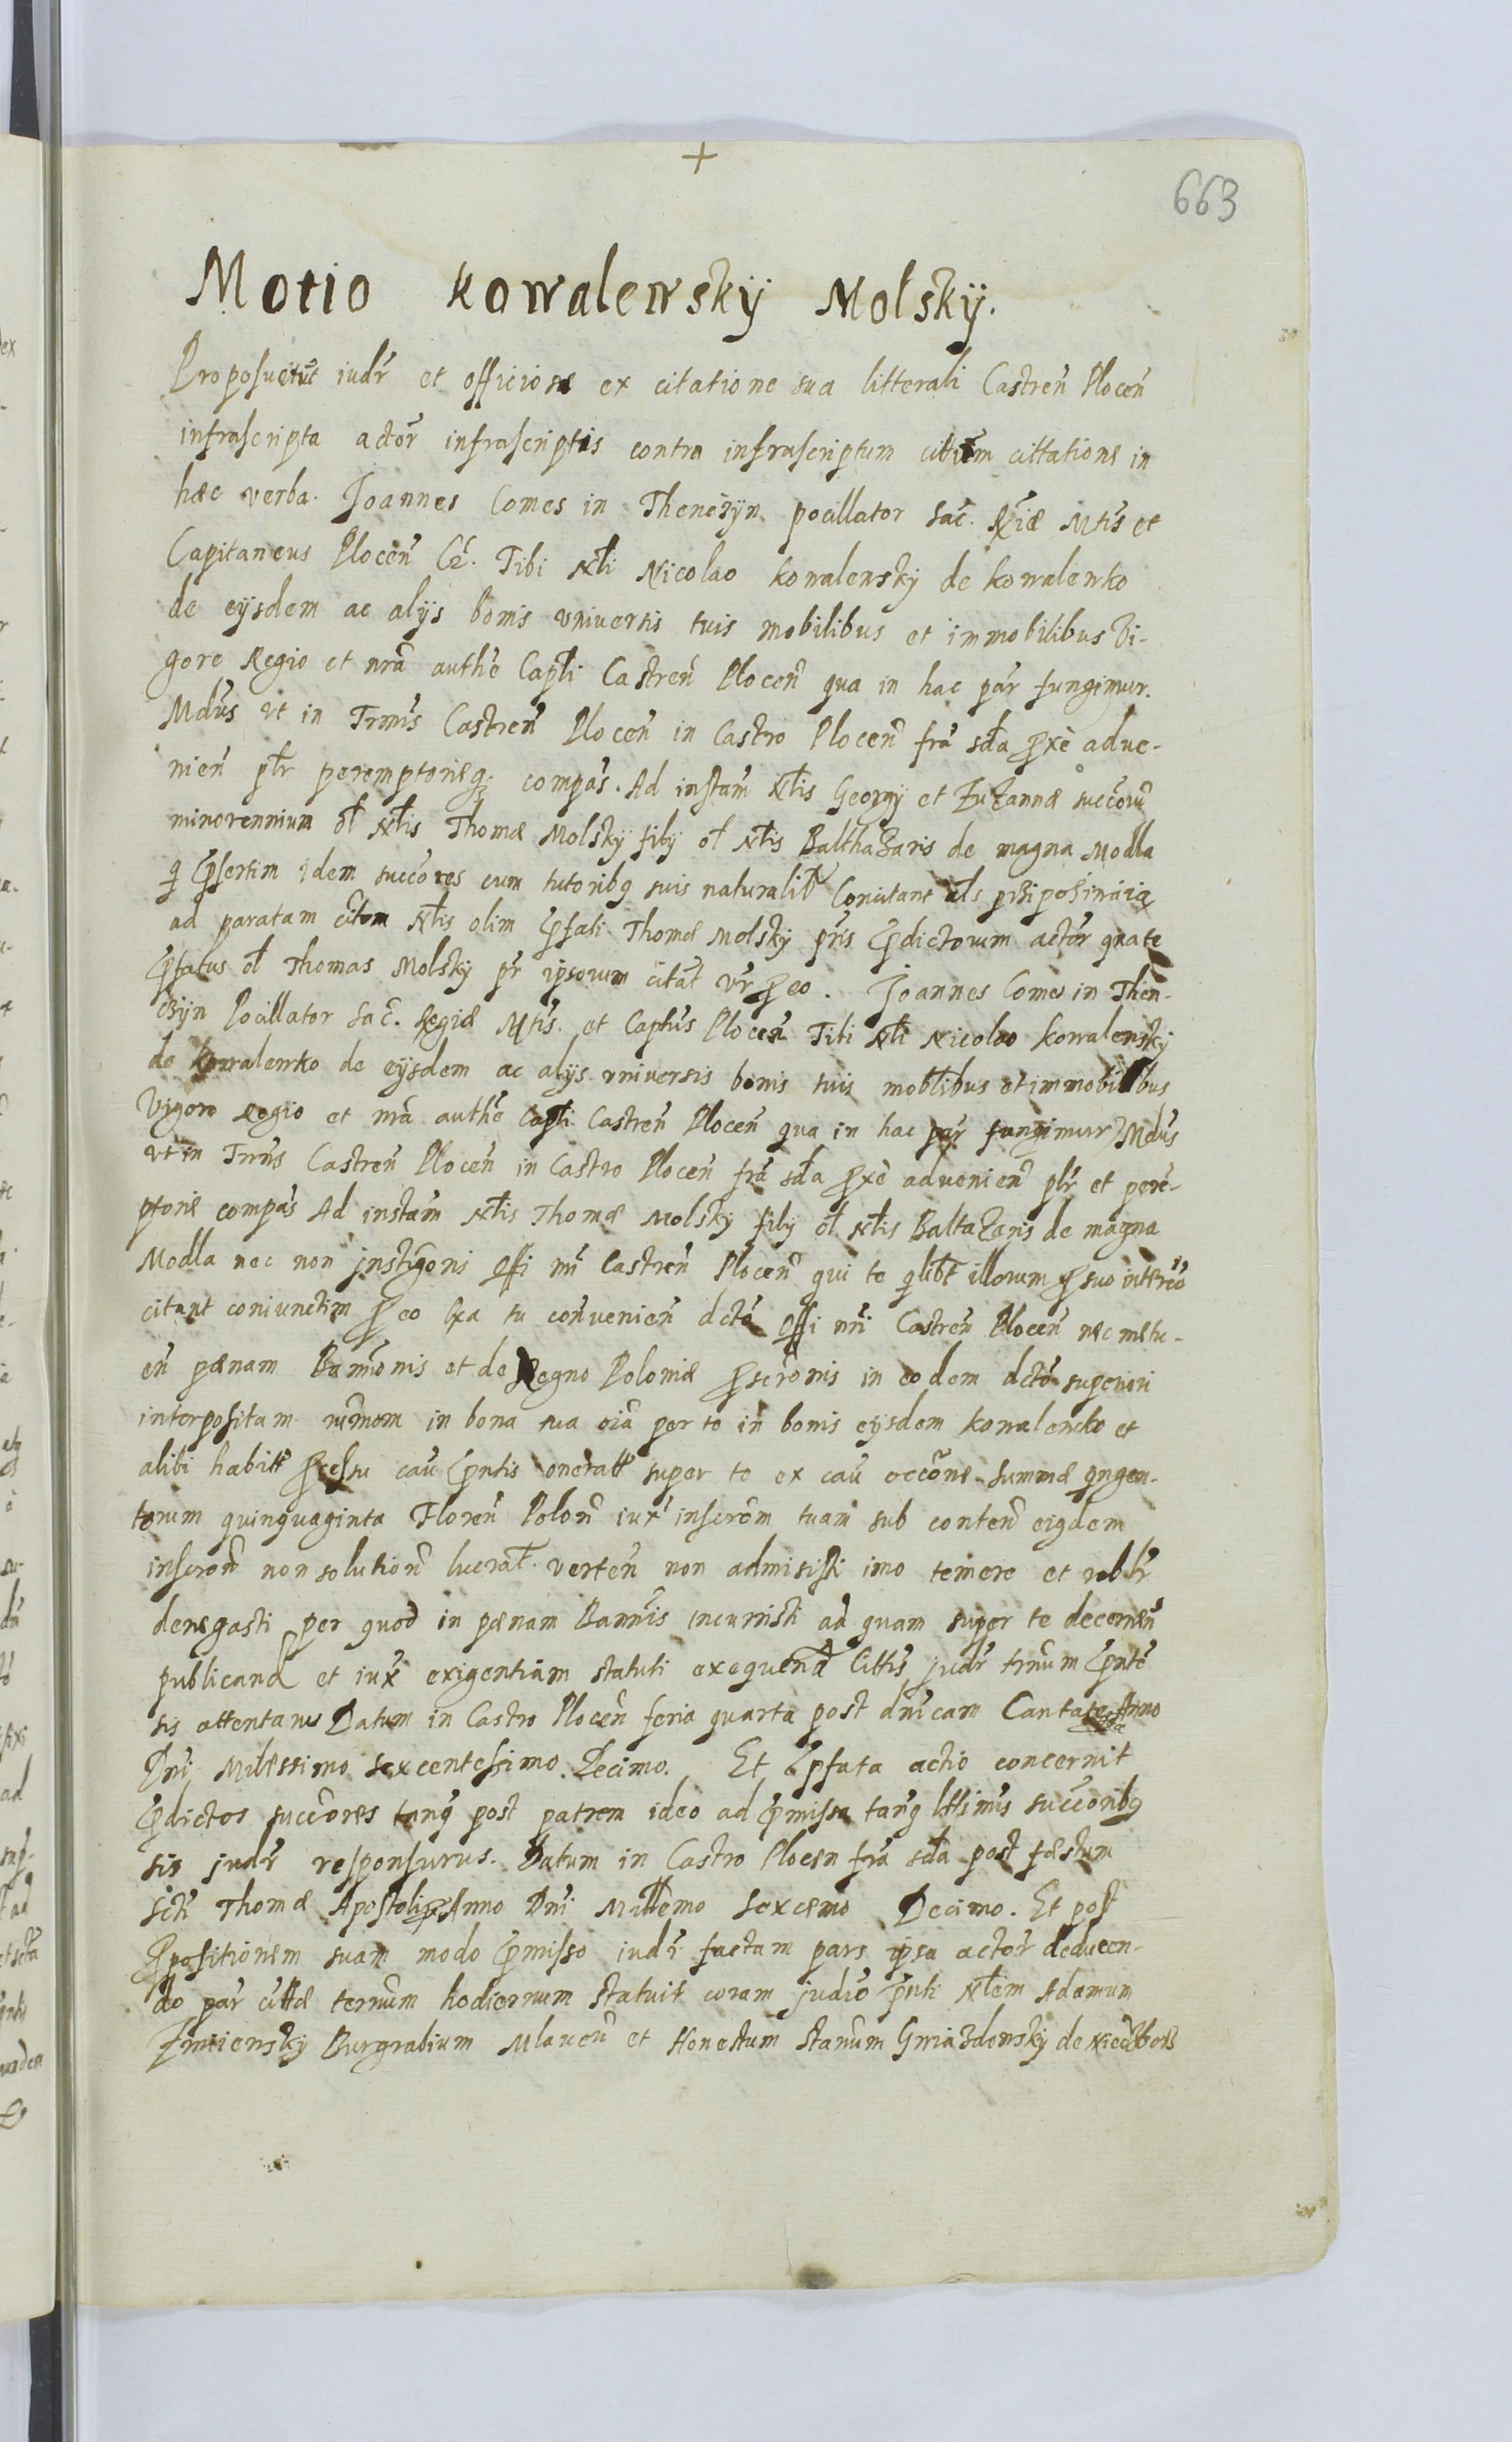 +
663
Motio Kowalewskÿ Molskÿ.
Proposuetūt iudr̄ et officiose ex citatione sua litterali Castren̄ Plocen̄
infrascripta actor̄ infrascriptis contra infrascriptum citum cittatione in
hæc verba. Joannes Comes in Thenczÿn pocillator Sac. Riæ Mtis et
Capitaneus Plocen̄ Cę. Tibi Nli Nicolao Kowalewskÿ de Kowalewko
de eÿsdem ac alÿs bonis vniversis tuis mobilibus et immobilibus Vi-
gore Regio et nrā authē Capli Castren̄ Plocen̄ qua in hac par̄ fungimur.
Mdūs vt in Trmis Castren̄ Plocen̄ in Castro Plocen̄ frā sda pxe adve-
nien̄ plr̄ peremptorieq; compās. Ad instām Nlis Georgÿ et Zuzannæ succor̄
minorennium ol Nlis Thomæ Molskÿ filÿ ol Nlis Balthazaris de magna Modla
q pserfim idem succores cum tutoribq suis naturalib Conutant als
ad paratam citom Nlis olim pfati Thomæ Molskÿ pris pdictorum actor̄ qua te
pfatus ol Thomas Molskÿ pr̄ ipsorum citat vr̄ p eo. Joannes Comes in Then-
czÿn Pocillator Sac. Regiæ Mtis. et Captūs Plocen̄ Tibi Nli Nicolao Kowalewskÿ
de Kowalewko de eÿsdem ac alÿs vniversis bonis tuis moblibus et immobilibus
Vigore Regio et nrā authē Capli Castren̄ Plocen̄ qua in hac par̄ fungimur Mdūs
vt in Trmis Castren̄ Plocen̄ in Castro Plocen̄ frā sda pxe advenien̄ plr̄ et pere-
ptorie compās Ad instām Nlis Thomæ Molskÿ filÿ ol Nlis Baltazaris de magna
Modla nec non jnstigoris Offi nri Castren̄ Plocen̄ qui te qlibt illorum p suo inttrēe
citant coniunctim p eo Qa tu convenien̄ dcto Offi nri Castren̄ Plocen̄ nec metu-
en̄ pænam Bannonis et de Regno Poloniæ pscronis in eodem dcto superiori
interpositam rumom in bona tua oiā per te in bonis eÿsdem Kowalewko et
alibi habitt pcessu cau pntis oneratt super te ex cau occone summæ qngen-
torum quinquaginta Floren̄ Polon̄ iux inscrom tuam sub conten̄ eiqdem
inscron̄ non solution̄ lucrat. verten̄ non admisisti imo temere et reblr̄
denegasti per quod in pænam Bannis incurristi ad quam super te decernen̄
publicand et iux exigentiam statuti exequend Cittis judr̄ trnum pntē
sis attentarus Datum in Castro Plocen̄ feria quarta post dnicam Cantate Anno
Dni Milessimo sexcentessimo Decimo. Et pfata actio concernit
pdictos succores tanq post patrem ideo ad pmissa tanq lttimis succoribq
sis judr̄ responsurus. Datum in Castro Plocen frā sda post festum
Scti Thomæ Apostoli Anno Dni Millemo Sexcemo Decimo. Et post
Ppositionem suam modo pmisso iudr̄ factam pars ipsa actor̄ deducen-
do par̄ cittæ ternum hodiernum statuit coram judio pnti Nlem Adamum
Zmiiewskÿ Burgrabium Mlaven̄ et Honestum Stanum Gwiazdowskÿ de